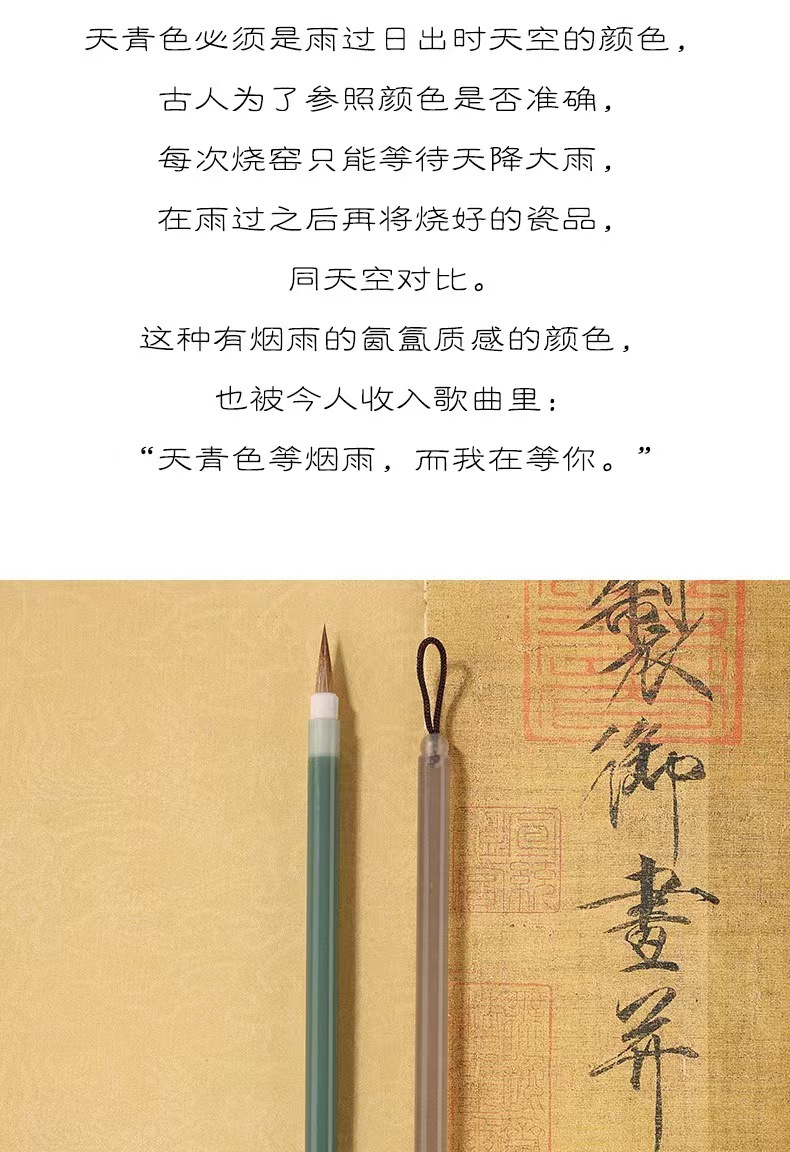 天青色必须是雨过日出时天空的颜色，
古人为了参照颜色是否准确，
每次烧窑只能等待天降大雨，
在雨过之后再将烧好的瓷品，
同天空对比。
这种有烟雨的氤氲质感的颜色，
也被今人收入歌曲里：
“天青色等烟雨，而我在等你。”
製御畫并